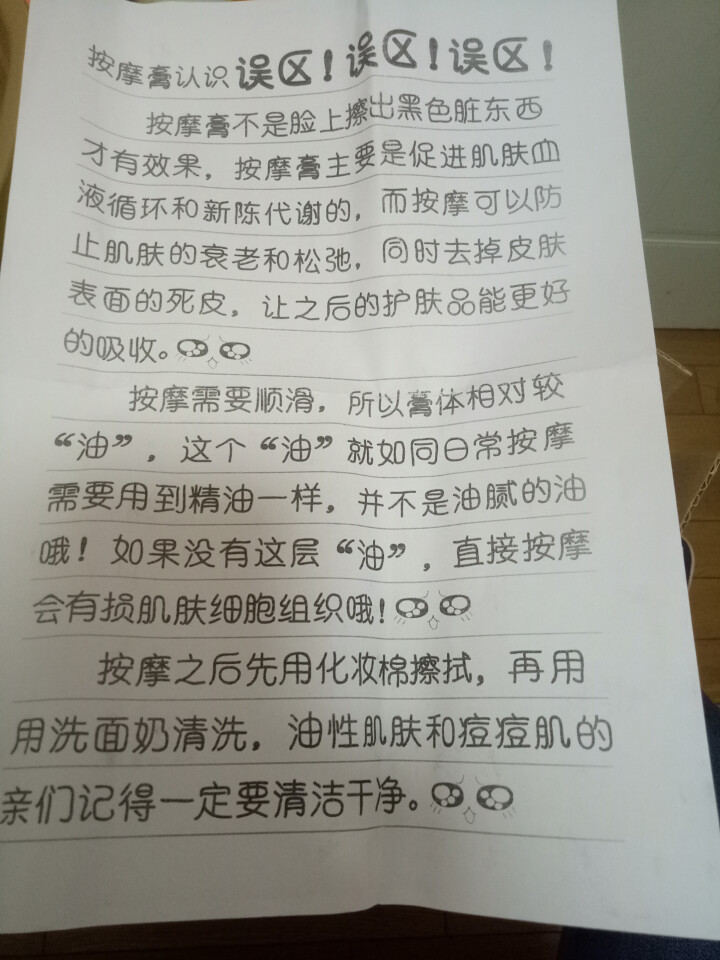 按摩膏认识误区！误区！误区！
按摩膏不是脸上擦出黑色脏东西
才有效果，按摩膏主要是促进肌肤血
液循环和新陈代谢的，而按摩可以防
止肌肤的衰老和松弛，同时去掉皮肤
表面的死皮，让之后的护肤品能更好
的吸收。
按摩需要顺滑，所以膏体相对较
“油”，这个“油”就如同日常按摩
需要用到精油一样，并不是油腻的油
哦！如果没有这层“油”，直接按摩
会有损肌肤细胞组织哦！
按摩之后先用化妆棉擦拭，再用
用洗面奶清洗，油性肌肤和痘痘肌的
亲们记得一定要清洁干净。